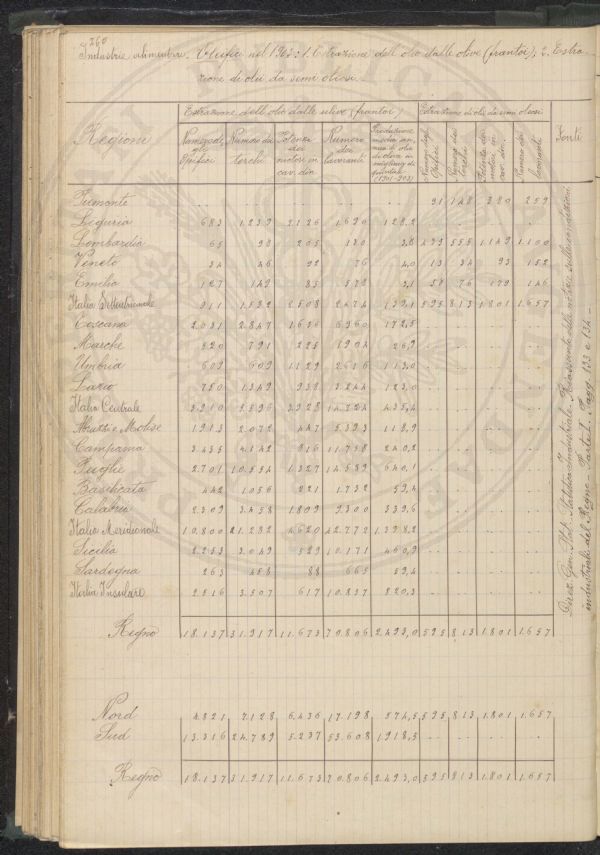 260
Industrie alimentari. Oleifici nel 1903: 1. Estrazione dell'olio dalle olive (frantoi); 2. Estra-
zione di olii da semi oleosi.
Estrazione dell'olio dalle ulive (frantoi) Estrazione di olii da semi oleosi
Regioni Numero degli Opifici Numero dei torchi Potenza dei motori in cav. din. Numero dei lavoranti Produzione media annua di olio di oliva in migliaia di quintali (1901-903) Numero degli Opifici Numero dei torchi Potenza dei motori in cav. din. Numero dei lavoranti Fonti
Piemonte .. .. .. .. .. 91 148 380 259
Liguria 683 1.239 2.126 1.690 128,2 .. .. .. ..
Lombardia 65 98 205 130 3,8 433 555 1.149 1.100
Veneto 34 46 92 76 4,0 13 34 93 152
Emilia 127 149 85 578 3,1 58 76 179 146
Italia Settentrionale 911 1.532 2.508 2.474 139,1 595 813 1.801 1.657
Toscana 2.031 2.847 1.656 6.960 172,5 .. .. .. ..
Marche 520 791 225 1.904 26,9 .. .. .. ..
Umbria 609 609 1.129 2.616 113,0 .. .. .. ..
Lazio 750 1.349 938 3.244 123,0 .. .. .. ..
Italia Centrale 3.910 5.596 3.928 14.724 435,4 .. .. .. ..
Abruzzi e Molise 1.913 2.072 447 5.393 118,9 .. .. .. ..
Campania 3.435 4.142 816 11.758 240,2 .. .. .. ..
Puglie 2.701 10.534 1.327 14.589 640,1 .. .. .. ..
Basilicata 442 1.056 221 1.732 59,4 .. .. .. ..
Calabria 2.309 3.458 1.809 9.300 339,6 .. .. .. ..
Italia Meridionale 10.800 21.282 4.620 42.772 1.398,2 .. .. .. ..
Sicilia 2.253 3.049 529 10.171 460,9 .. .. .. ..
Sardegna 263 458 88 665 59,4 .. .. .. ..
Italia Insulare 2.516 3.507 617 10.837 520,3 .. .. .. ..
Regno 18.137 31.917 11.673 70.806 2.493,0 595 813 1.801 1.657
Nord 4.821 7.128 6.436 17.198 574,5 595 813 1.801 1.657
Sud 13.316 24.789 5.237 53.608 1918,5 .. .. .. ..
Regno 18.137 31.917 11.673 70.806 2.493,0 595 813 1.801 1.657
Direz. Gen. Stat. Statistica Industriale. Riassunto delle notizie sulle condizioni
industriali del Regno. Parte I. Pagg. 133 e 134 -